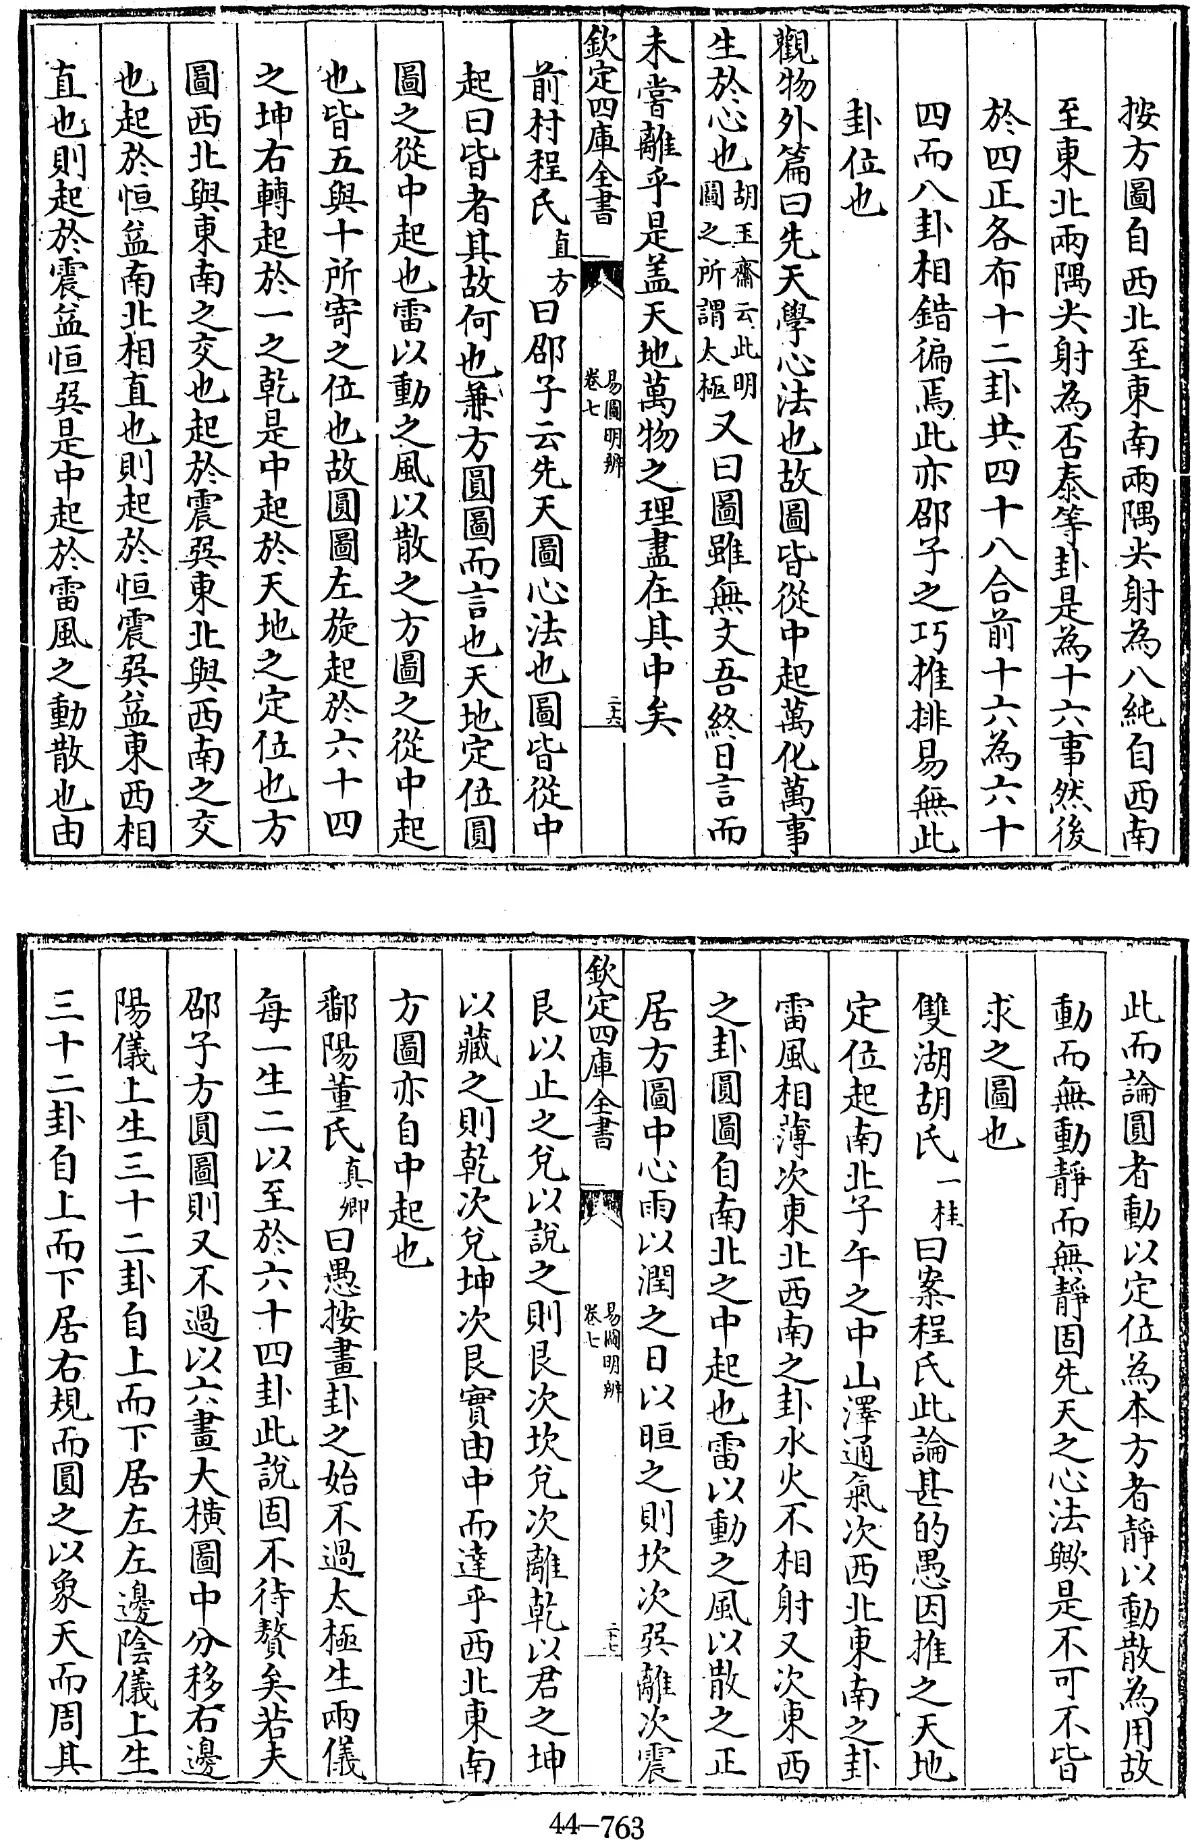 按方圖自西北至東南兩隅尖射為八純自西南
至東北兩隅尖射為否泰等卦是為十六事然後
於四正各布十二卦共四十八合前十六為六十
四而八卦相錯徧焉此亦邵子之巧推排易無此
卦位也
觀物外篇曰先天學心法也故圖皆從中起萬化萬事
生於心也胡玉齋云此明圖之所謂太極又曰圖雖無文吾終日言而
未嘗離乎是盖天地萬物之理盡在其中矣
欽定四庫全書 易圖明辨 卷七 二十六
前村程氏直方曰邵子云先天圖心法也圖皆從中
起曰皆者其故何也兼方圓圖而言也天地定位圓
圖之從中起也雷以動之風以散之方圖之從中起
也皆五與十所寄之位也故圓圖左旋起於六十四
之坤右轉起於一之乾是中起於天地之定位也方
圖西北與東南之交也起於震巽東北與西南之交
也起於恒益南北相直也則起於恒震巽益東西相
直也則起於震益恒巽是中起於雷風之動散也由
此而論圓者動以定位為本方者靜以動散為用故
動而無動靜而無靜固先天之心法歟是不可不皆
求之圖也
雙湖胡氏一桂曰案程氏此論甚的愚因推之天地
定位起南北子午之中山澤通氣次西北東南之卦
雷風相薄次東北西南之卦水火不相射又次東西
之卦圓圖自南北之中起也雷以動之風以散之正
居方圖中心雨以潤之日以晅之則坎次巽離次震
欽定四庫全書 易圖明辨 卷七 二十七
艮以止之兌以說之則艮次坎兌次離乾以君之坤
以藏之則乾次兌坤次艮實由中而達乎西北東南
方圖亦自中起也
鄱陽董氏真卿曰愚按畫卦之始不過太極生兩儀
每一生二以至於六十四卦此說固不待贅矣若夫
邵子方圓圖則又不過以六畫大橫圖中分移右邊
陽儀上生三十二卦自上而下居左左邊陰儀上生
三十二卦自上而下居右規而圓之以象天而周其
44-763